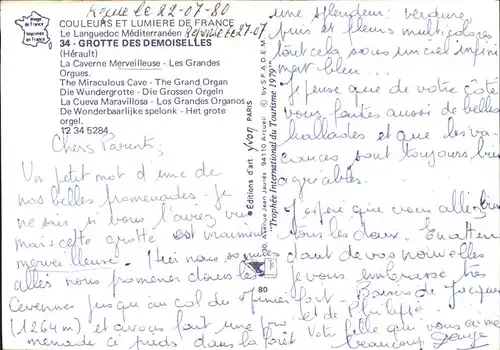 Reçue le 22-07-80
Réponse le 27-07
Image de France
Imprimée en France
COULEURS ET LUMIERE DE FRANCE
Le Languedoc Méditerranéen
34 - GROTTE DES DEMOISELLES
(Hérault)
La Caverne Merveilleuse - Les Grandes
Orgues.
The Miraculous Cave - The Grand Organ
Die Wundergrotte - Die Grossen Orgeln
La Cueva Maravillosa - Los Grandes Organos
De Wonderbaarlijke spelonk - Het grote
orgel.
12 34 5284
Chers Parents,
Un petit mot d'une de
nos belles promenades. Je
ne sais si vous l'avez vu
mais cette grotte est vraiment
merveilleuse. Hier nous sommes
allés nous promener dans les
Cévennes jusqu'au col de
(1264m) et avons fait une pro
menade à pieds dans la forêt
Editions d'art yvon PARIS
Avenue Jean Jaurès 94110 Arcueil © by S.P.A.D.E.M.
"Trophée International du Tourisme 1979"
80
une splendeur: verdure
puis et fleurs multicolores
tout cela sous un ciel infini
ment bleu...
Je pense que de votre côté
vous faites aussi de belles
ballades et que les va
cances sont toujours bien
agréables.
J'espère que vous allez bien
tous les deux. En atten
dant de vos nouvelles
je vous embrasse très
fort. Baisers de Jacques
et de Philippe
Votre fille qui vous aime
beaucoup